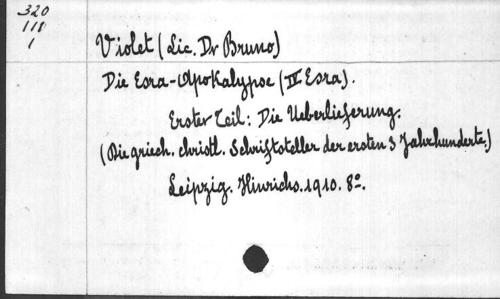 320
118
1
Violet (Lic. Dr Bruno)
Die Esra-Apokalypse (IV Esra).
Erster Teil: Die Ueberlieferung.
(Die griech. christl. Schriftsteller der ersten 3 Jahrhunderte.)
Leipzig. Hinrichs. 1910. 8º.